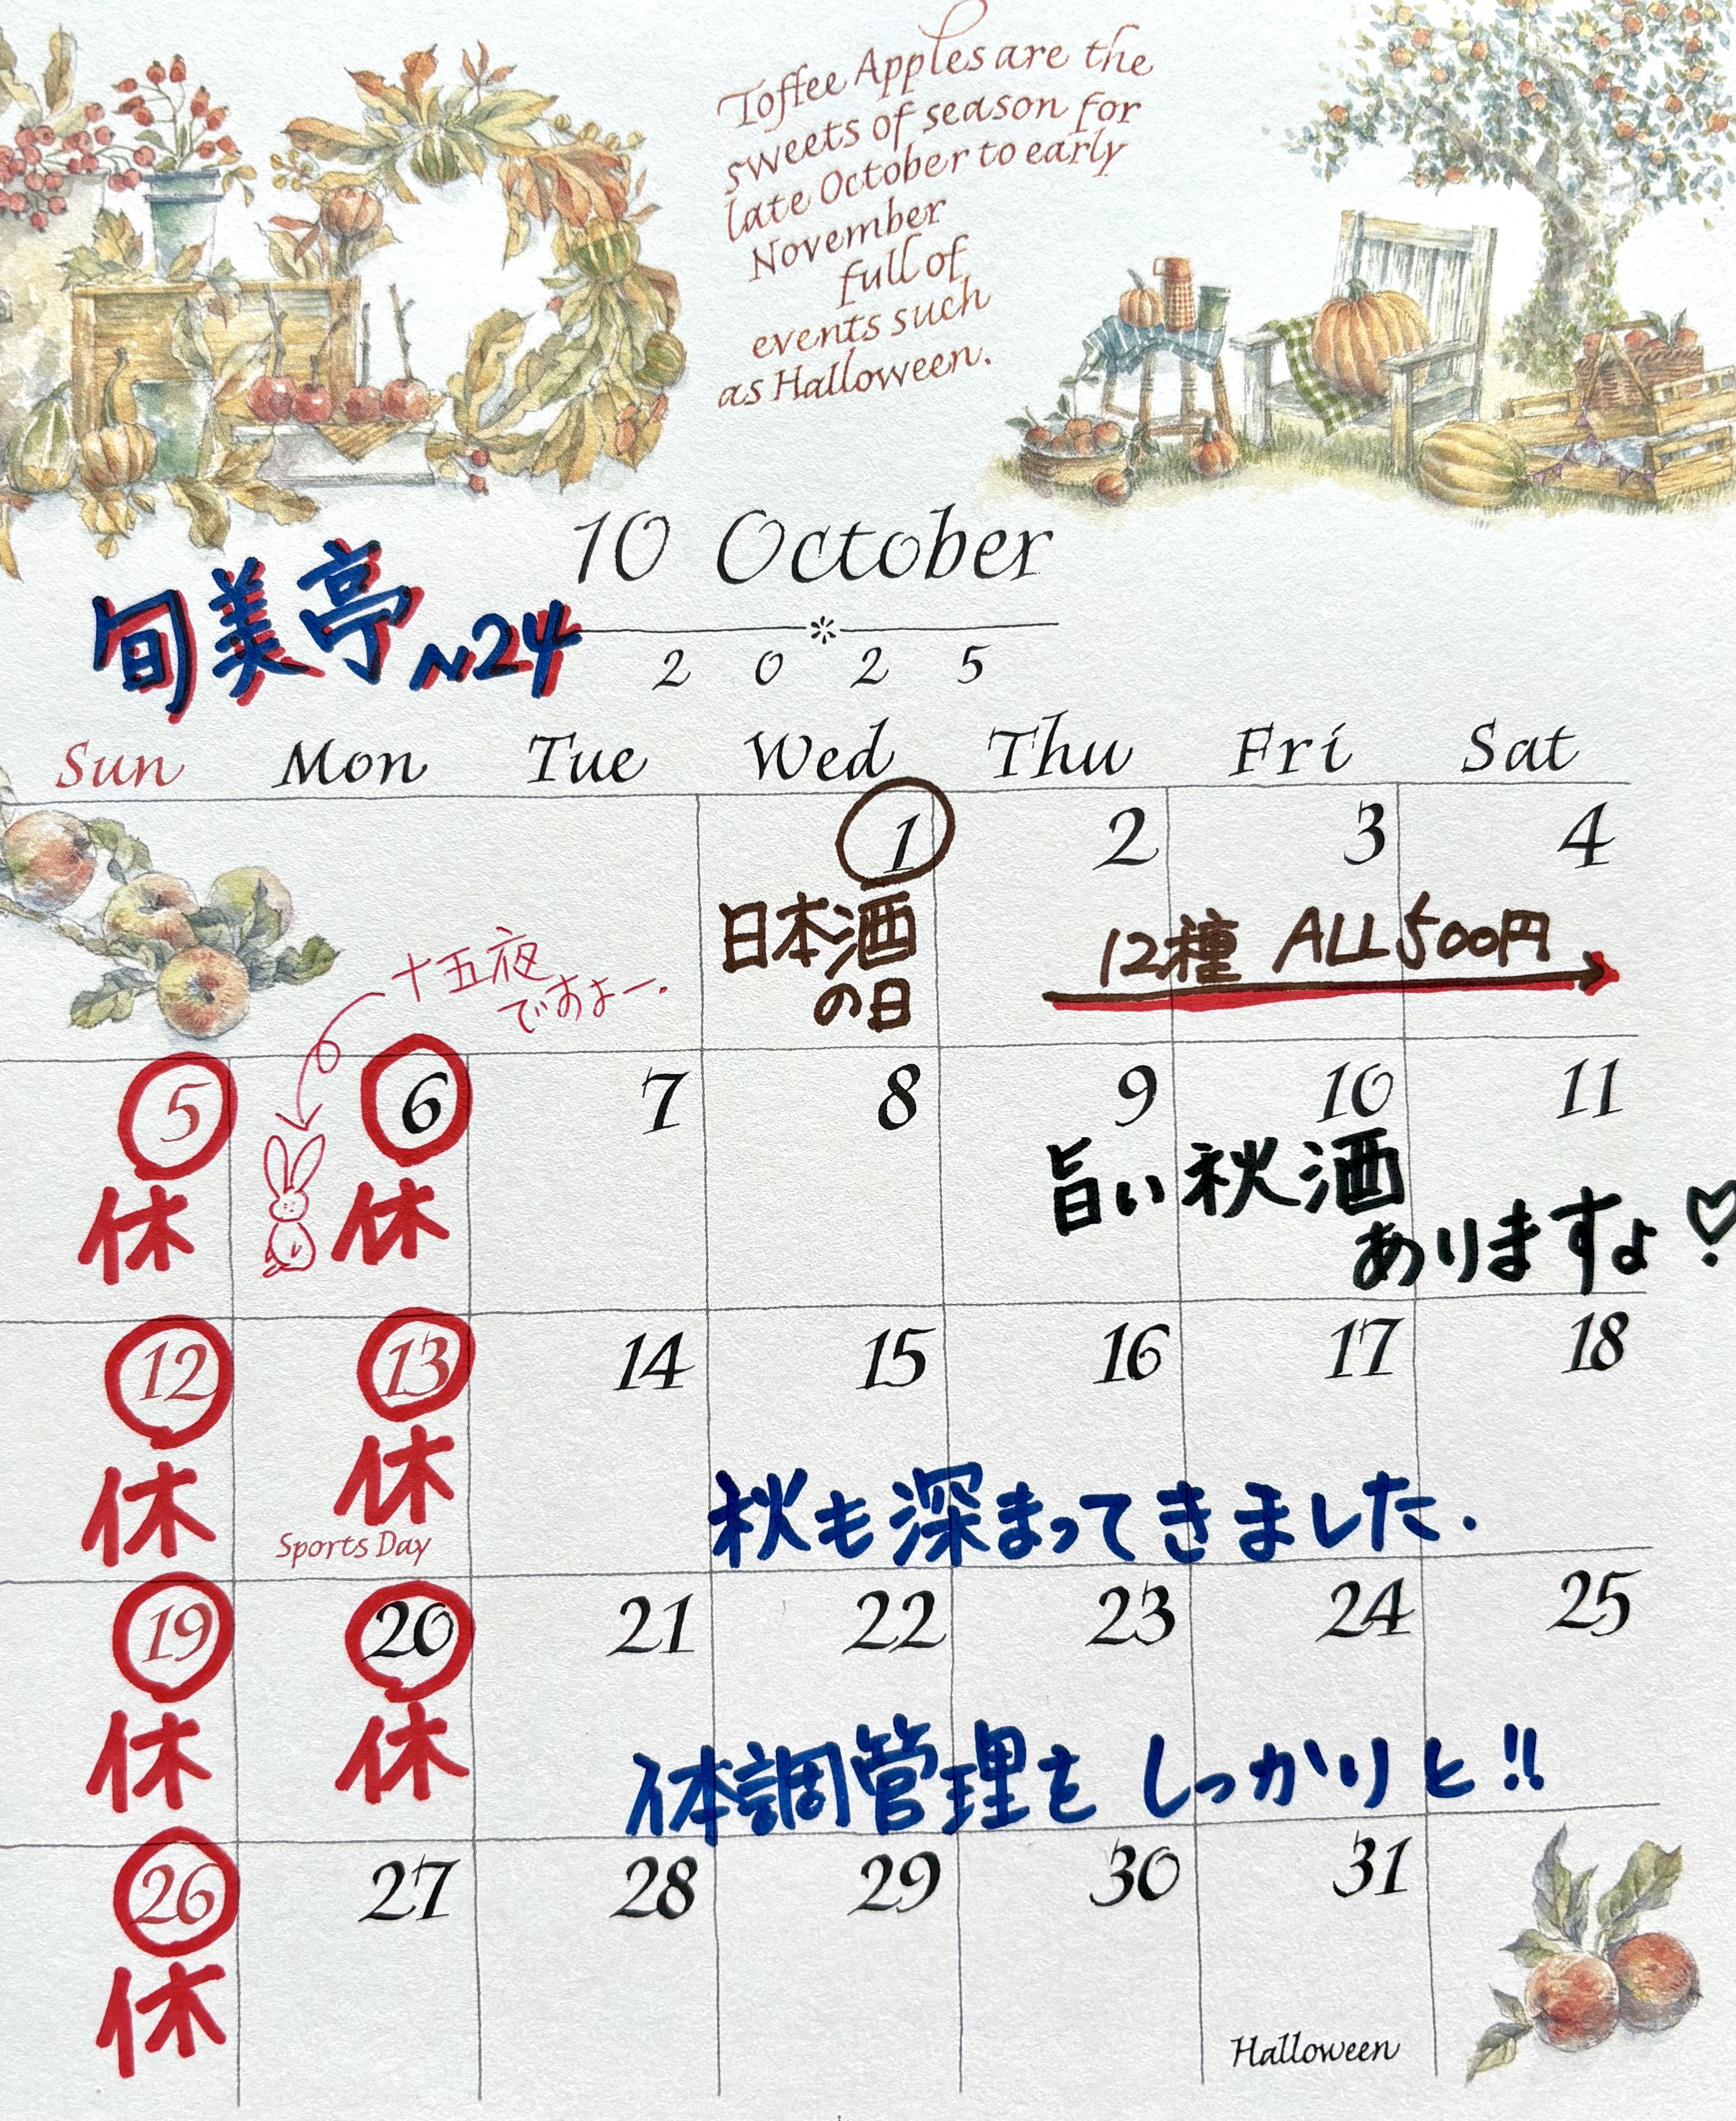 Toffee Apples are the
sweets of season for
late October to early
November
full of
events such
as Halloween.
10 October
旬美亭N24
2 0 2 5
Sun Mon Tue Wed Thu Fri Sat
1 2 3 4
日本酒
の日
12種 ALL500円
十五夜
ですよー.
5 6 7 8 9 10 11
休 休
旨い秋酒
ありますよ♡
12 13 14 15 16 17 18
休 休
Sports Day
秋も深まってきました.
19 20 21 22 23 24 25
休 休
体調管理を しっかりと!!
26 27 28 29 30 31
休
Halloween